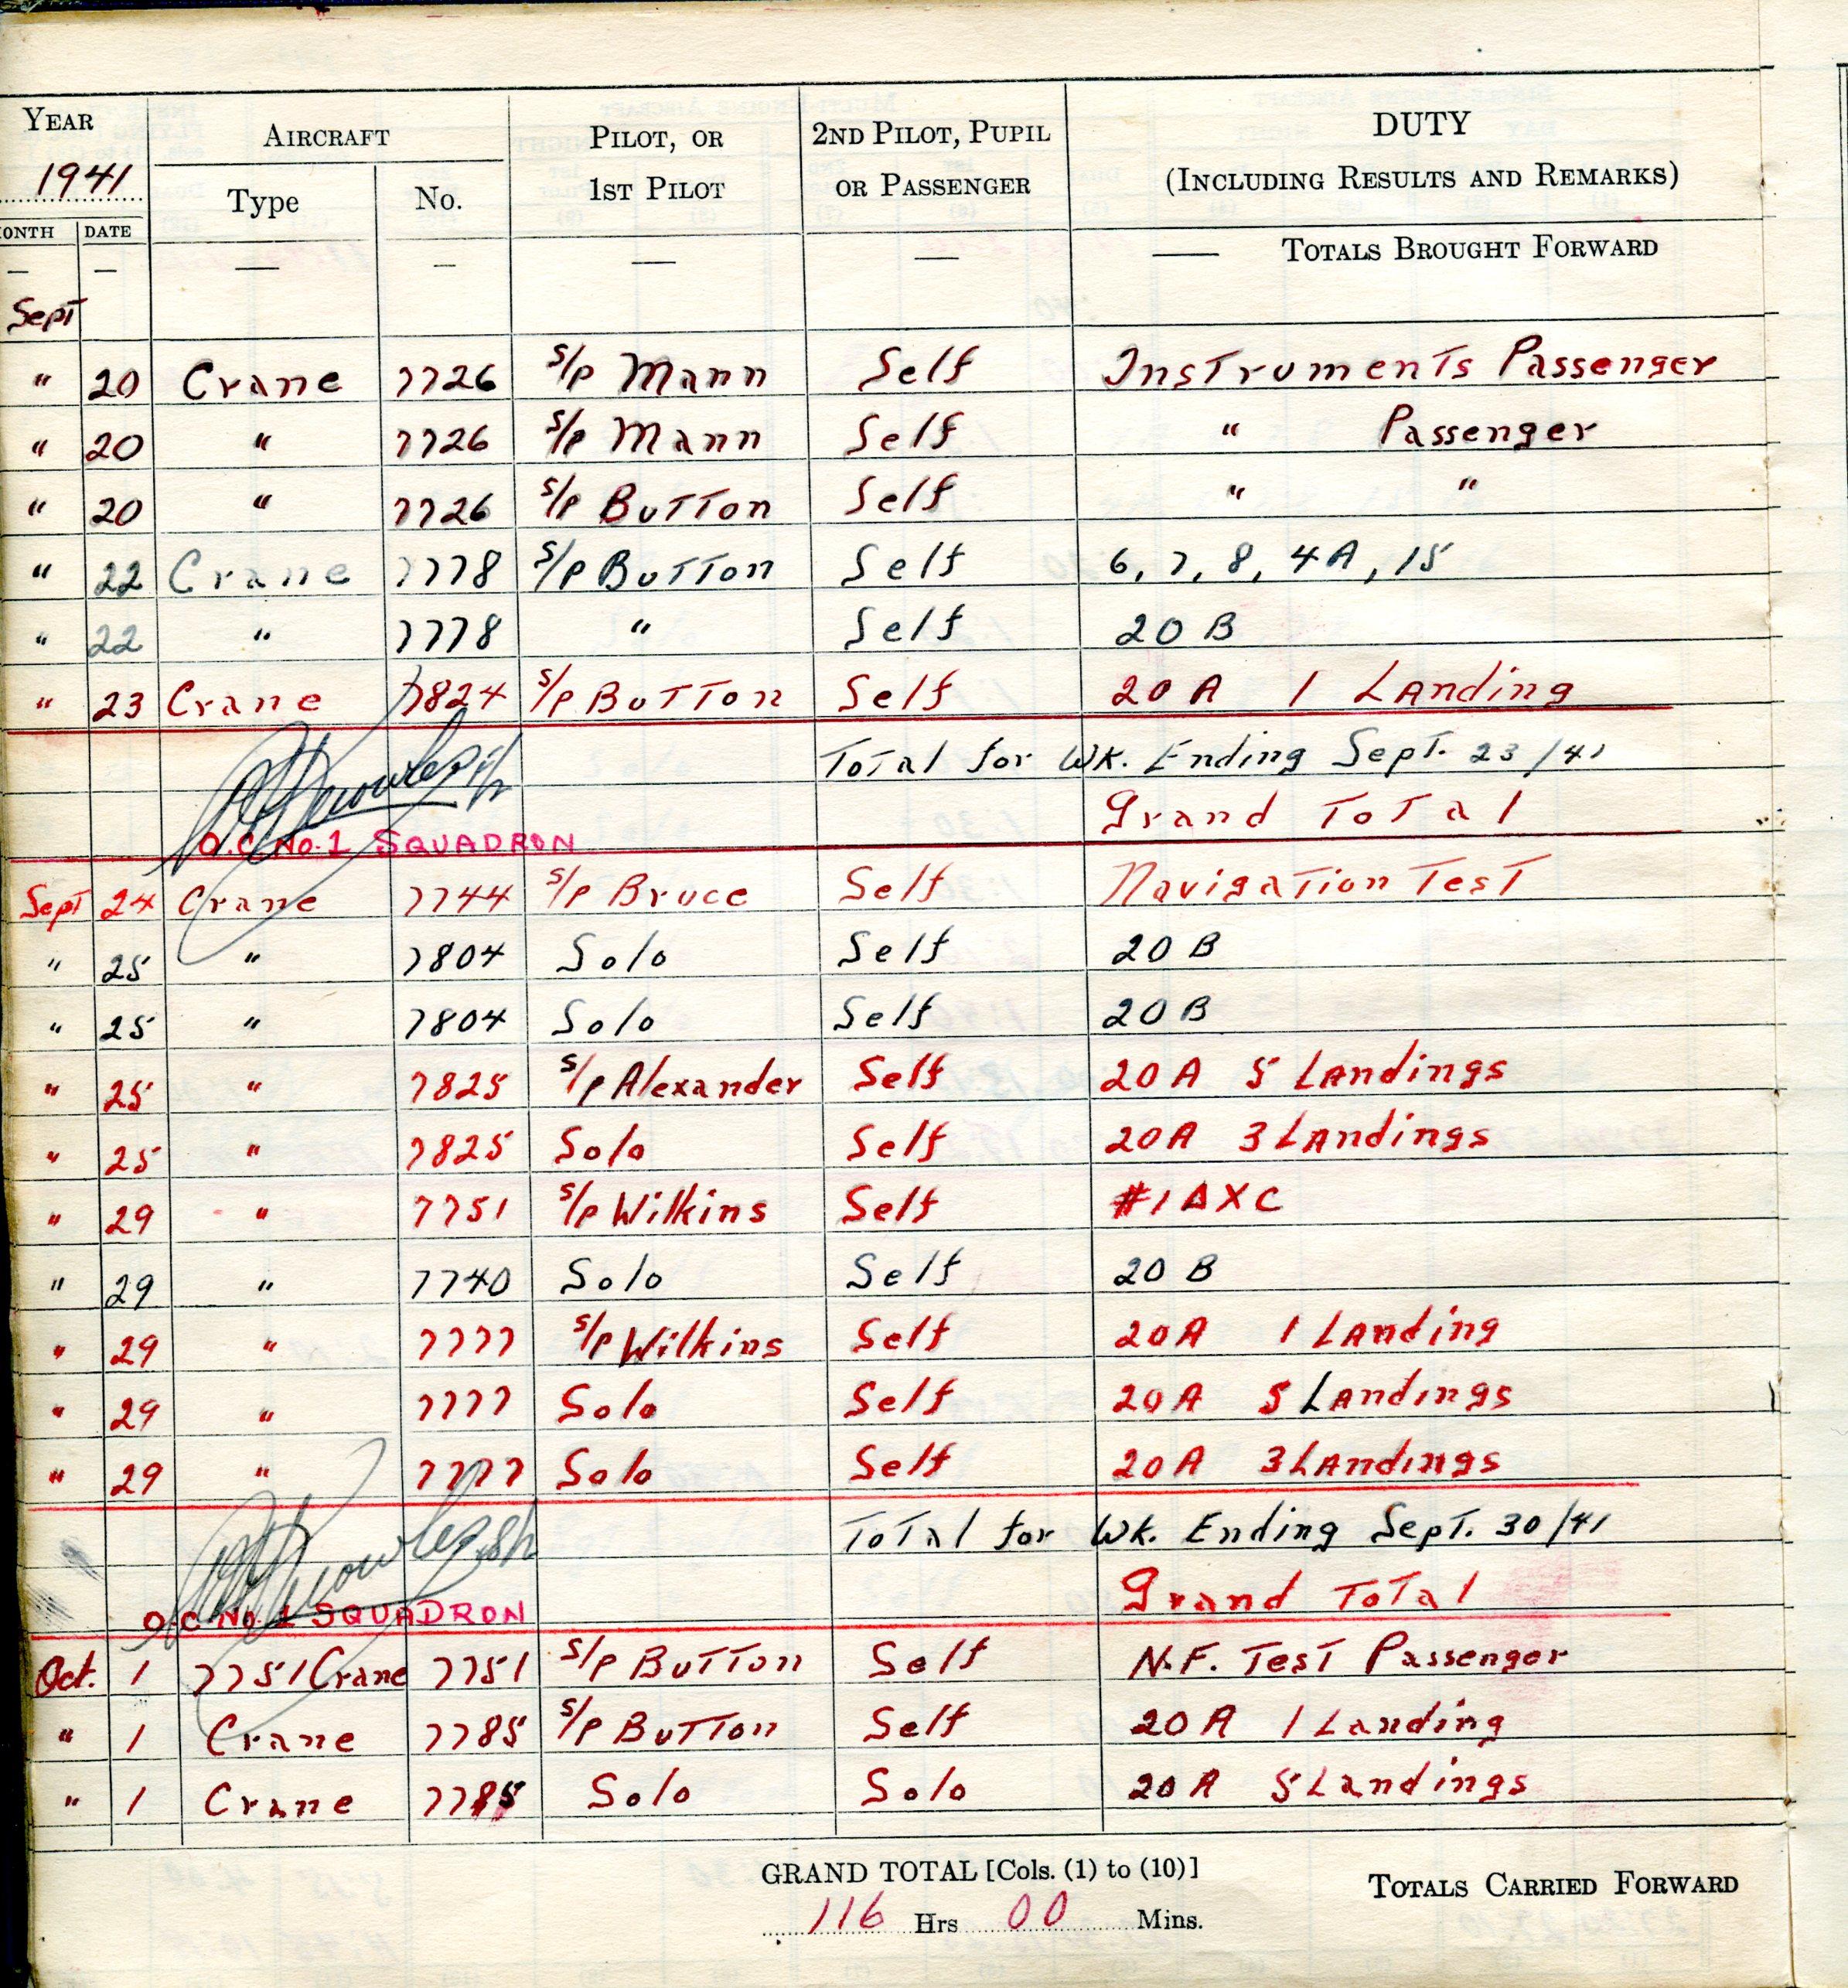 YEAR AIRCRAFT PILOT, OR 2ND PILOT, PUPIL DUTY
1941 Type No. 1ST PILOT OR PASSENGER (INCLUDING RESULTS AND REMARKS)
ONTH DATE
— — — — — — — TOTALS BROUGHT FORWARD
Sept
" 20 Crane 7726 S/P Mann Self Instruments Passenger
" 20 " 7726 S/P Mann Self " Passenger
" 20 " 7726 S/P Button Self " "
" 22 Crane 7778 S/P Button Self 6, 7, 8, 4A, 15
" 22 " 7778 " Self 20 B
" 23 Crane 7824 S/P Button Self 20 A 1 Landing
Total for Wk. Ending Sept. 23/41
Grand Total
O.C. No. 1 SQUADRON
Sept 24 Crane 7744 S/P Bruce Self Navigation Test
" 25 " 7804 Solo Self 20 B
" 25 " 7804 Solo Self 20 B
" 25 " 7825 S/P Alexander Self 20 A 5 Landings
" 25 " 7825 Solo Self 20 A 3 Landings
" 29 " 7751 S/P Wilkins Self #1 A X C
" 29 " 7740 Solo Self 20 B
" 29 " 7777 S/P Wilkins Self 20 A 1 Landing
" 29 " 7777 Solo Self 20 A 5 Landings
" 29 " 7777 Solo Self 20 A 3 Landings
Total for Wk. Ending Sept. 30/41
Grand Total
O.C No. 1 SQUADRON
Oct. 1 7751 Crane 7751 S/P Button Self N.F. Test Passenger
" 1 Crane 7785 S/P Button Self 20 A 1 Landing
" 1 Crane 7785 Solo Solo 20 A 5 Landings
GRAND TOTAL [Cols. (1) to (10)] TOTALS CARRIED FORWARD
116 Hrs 00 Mins.